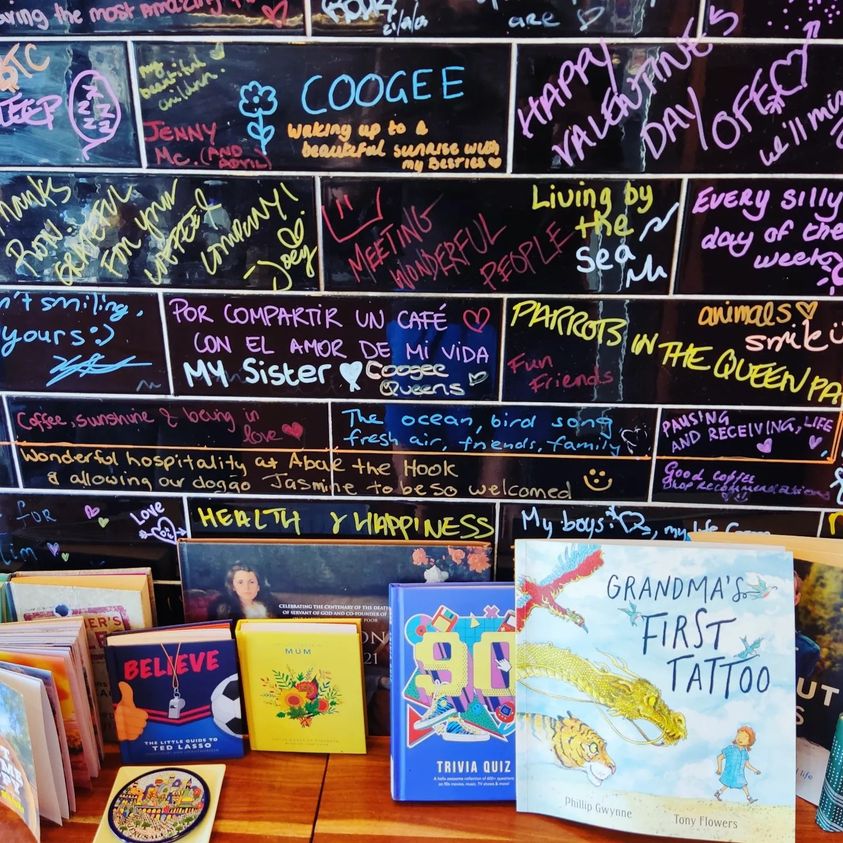 ving the most amazing
are
TC
my
beautiful
children!
COOGEE
HAPPY
VALENTINE'S
DAY
we'll
JENNY
MC. (AND
waking up to a
beautiful sunrise with
my Besties
THANKS
RON!
GRATEFUL
FOR YOUR
COFFEE &
COMPANY!
Joey
MEETING
WONDERFUL
PEOPLE
Living by
the
Sea
EVERY SILLY
day of the
week
n't smiling,
yours :)
POR COMPARTIR UN CAFÉ
CON EL AMOR DE MI VIDA
MY Sister
Coogee
Queens
PARROTS
IN THE QUEEN PA
Fun
Friends
animals
smile
Coffee, sunshine & being in
love
The ocean, bird song
fresh air, friends, family
PAUSING
AND RECEIVING, LIFE
Wonderful hospitality at Above the Hook
& allowing our doggo Jasmine to be so welcomed
Good coffee
Shop recommendations
for
Love
HEALTH & HAPPINESS
My boys
my life
CELEBRATING THE CENTENARY OF THE DEATH
OF SERVANT OF GOD AND CO-FOUNDER OF
BELIEVE
THE LITTLE GUIDE TO
TED LASSO
MUM
90
TRIVIA QUIZ
GRANDMA'S
FIRST
TATTOO
Phillip Gwynne
Tony Flowers
UT
life
JERUSALEM